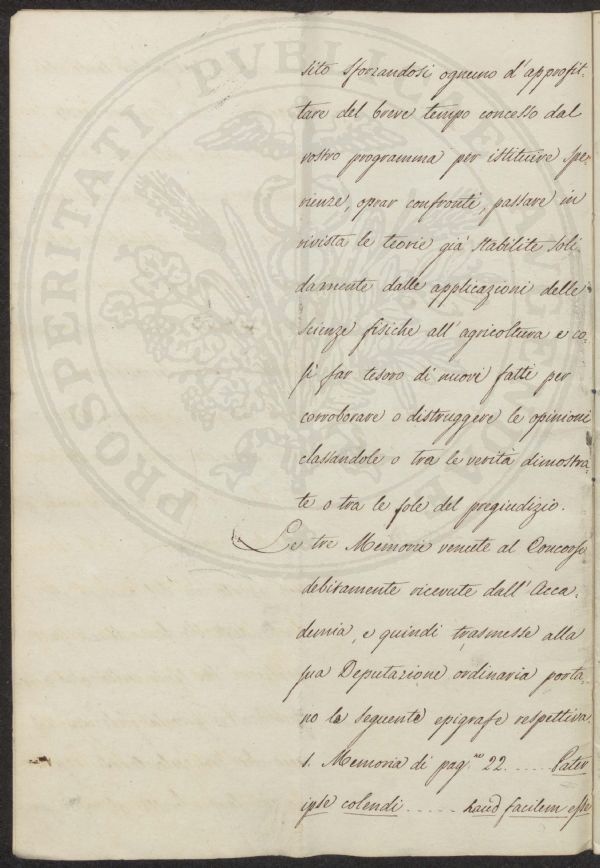 sito sforzandosi ognuno d'approfit-
tare del breve tempo concesso dal
vostro programma per istituire spe-
rienze, oprar confronti, passare in
rivista le teorie già stabilite soli
damente dalle applicazioni delle
scienze fisiche all'agricoltura e co-
sì far tesoro di nuovi fatti per
corroborare o distruggere le opinioni
classandole o tra le verità dimostra-
te o tra le fole del pregiudizio.
Le tre Memorie venute al Concorso
debitamente ricevute dall'Acca-
demia, e quindi trasmesse alla
sua Deputazione ordinaria porta-
no la seguente epigrafe respettiva.
1. Memoria di pag.ne 22. .... Pater
ipse colendi ..... haud facilem esse
PROSPERITATI PVBLICAE